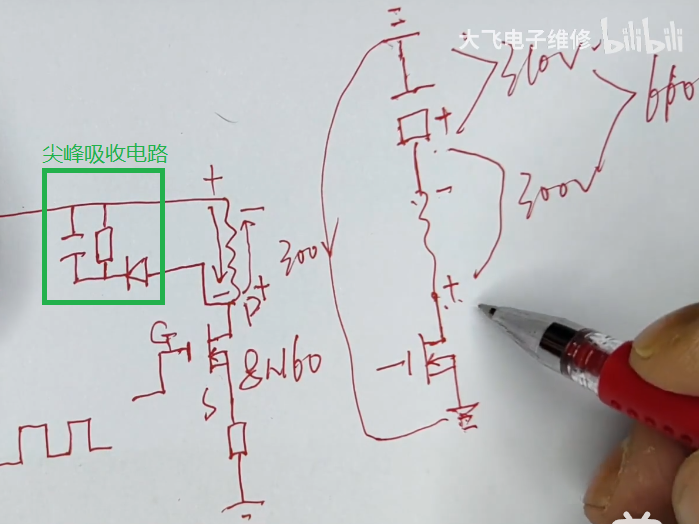 大飞电子维修 bilibili
310V
660
尖峰吸收电路
+
+
-
-
300V
300
-
+
+
G
8N60
S